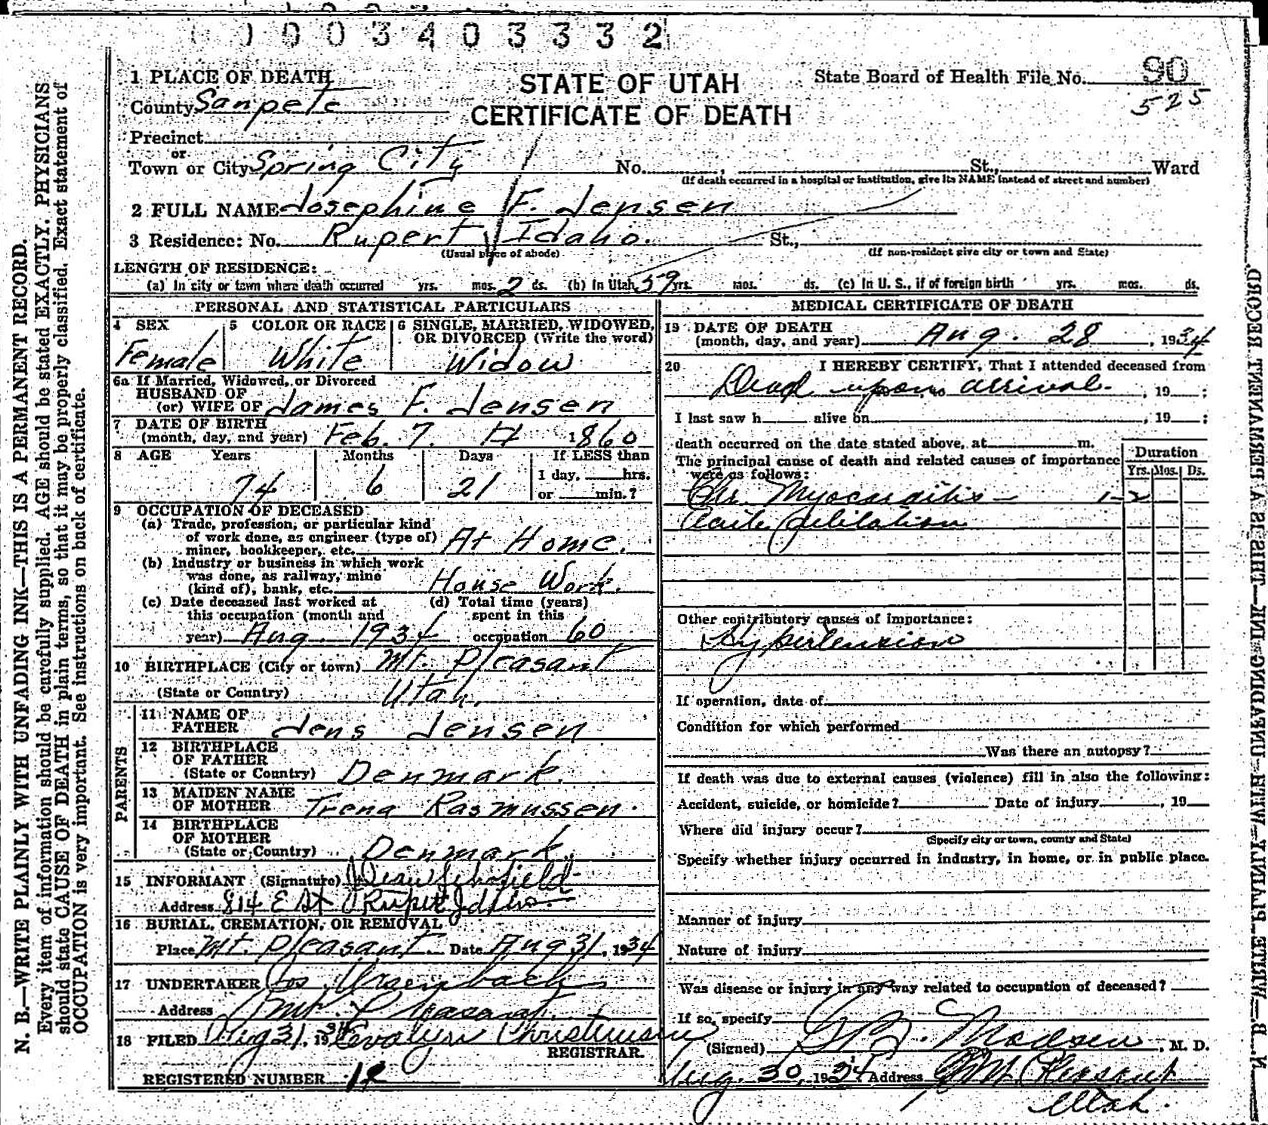 0 0 0 3 4 0 3 3 3 2
STATE OF UTAH
CERTIFICATE OF DEATH
State Board of Health File No. 90
525
1 PLACE OF DEATH
County Sanpete
Precinct
or
Town or City Spring City No. St., Ward
(If death occurred in a hospital or institution, give its NAME instead of street and number)
2 FULL NAME Josephine F. Jensen
3 Residence: No. Rupert Idaho. St.,
(Usual place of abode) (If non-resident give city or town and State)
LENGTH OF RESIDENCE:
(a) In city or town where death occurred yrs. mos. 2 ds. (b) In Utah 59 yrs. mos. ds. (c) In U. S., if of foreign birth yrs. mos. ds.
PERSONAL AND STATISTICAL PARTICULARS
4 SEX Female
5 COLOR OR RACE White
6 SINGLE, MARRIED, WIDOWED, OR DIVORCED (Write the word) Widow
6a If Married, Widowed, or Divorced
HUSBAND OF
(or) WIFE OF James F. Jensen
7 DATE OF BIRTH
(month, day, and year) Feb. 7. 1860
8 AGE Years Months Days If LESS than
74 6 21 1 day, hrs.
or min.?
9 OCCUPATION OF DECEASED
(a) Trade, profession, or particular kind
of work done, as engineer (type of)
miner, bookkeeper, etc. At Home.
(b) Industry or business in which work
was done, as railway, mine
(kind of), bank, etc. House Work.
(c) Date deceased last worked at
this occupation (month and
year) Aug. 1934
(d) Total time (years)
spent in this
occupation 60
10 BIRTHPLACE (City or town) Mt. Pleasant
(State or Country) Utah.
PARENTS
11 NAME OF
FATHER Jens Jensen
12 BIRTHPLACE
OF FATHER
(State or Country) Denmark.
13 MAIDEN NAME
OF MOTHER Trena Rasmussen.
14 BIRTHPLACE
OF MOTHER
(State or Country) Denmark.
15 INFORMANT (Signature) Schofield
Address 814 E St Rupert Idaho
16 BURIAL, CREMATION, OR REMOVAL
Place Mt. Pleasant. Date Aug 31, 1934
17 UNDERTAKER
Address Mt. Pleasant.
18 FILED Aug 31. 1934 Evalyn Christensen
REGISTRAR.
REGISTERED NUMBER 12
MEDICAL CERTIFICATE OF DEATH
19 DATE OF DEATH
(month, day, and year) Aug. 28, 1934
20 I HEREBY CERTIFY, That I attended deceased from
Dead upon arrival. , 19 ;
I last saw h alive on , 19 ;
death occurred on the date stated above, at m.
The principal cause of death and related causes of importance
were as follows:
Duration
Yrs. Mos. Ds.
Chr. Myocarditis 1-2
Acute dilitation
Other contributory causes of importance:
Hypertension
If operation, date of
Condition for which performed
Was there an autopsy?
If death was due to external causes (violence) fill in also the following:
Accident, suicide, or homicide? Date of injury , 19
Where did injury occur?
(Specify city or town, county and State)
Specify whether injury occurred in industry, in home, or in public place.
Manner of injury
Nature of injury
Was disease or injury in any way related to occupation of deceased?
If so, specify
(Signed) Madsen, M. D.
Aug. 30, 1934 Address Mt Pleasant
Utah.
N. B.—WRITE PLAINLY WITH UNFADING INK—THIS IS A PERMANENT RECORD.
Every item of information should be carefully supplied. AGE should be stated EXACTLY. PHYSICIANS
should state CAUSE OF DEATH in plain terms, so that it may be properly classified. Exact statement of
OCCUPATION is very important. See instructions on back of certificate.
N. B.—WRITE PLAINLY WITH UNFADING INK—THIS IS A PERMANENT RECORD